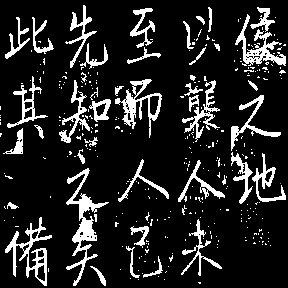 侯之地
以襲人未
至而人已
先知之矣
此其備